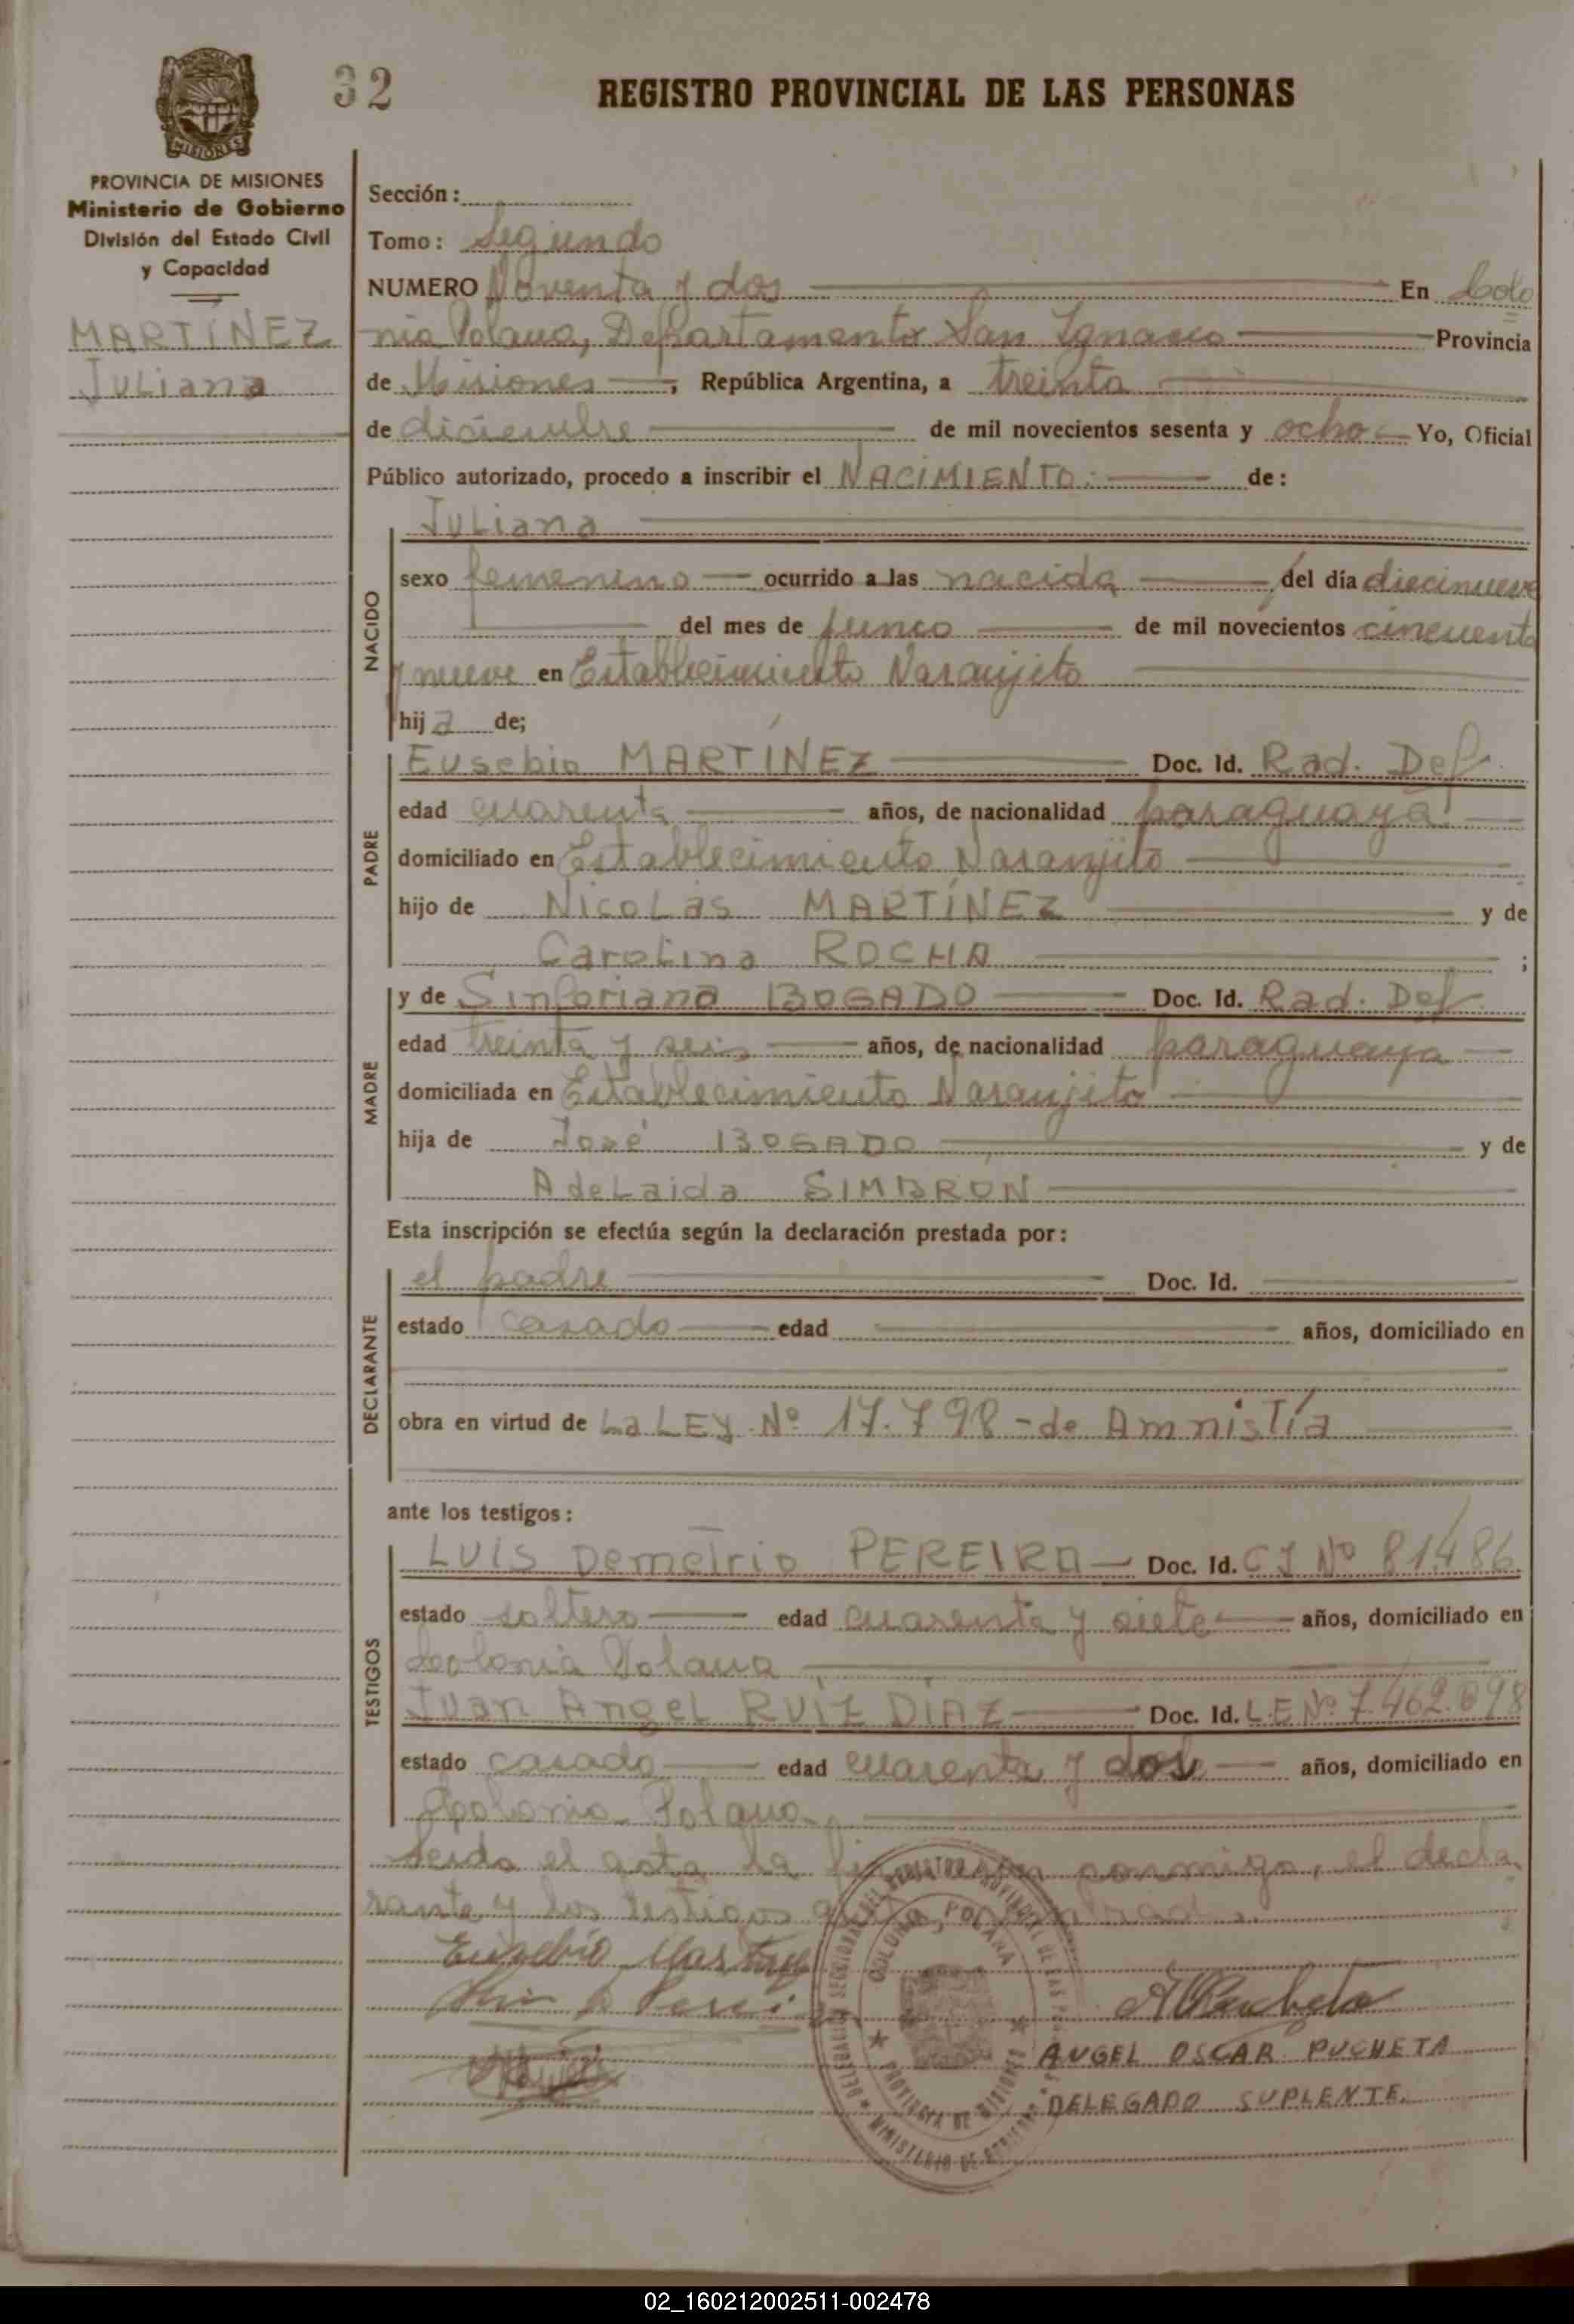 32
REGISTRO PROVINCIAL DE LAS PERSONAS
MISIONES
PROVINCIA DE MISIONES
Ministerio de Gobierno
División del Estado Civil
y Capacidad
MARTÍNEZ
Juliana
Sección:
Tomo: Segundo
NUMERO Noventa y dos En Colo
nia Polana, Departamento San Ignacio Provincia
de Misiones, República Argentina, a treinta
de diciembre de mil novecientos sesenta y ocho Yo, Oficial
Público autorizado, procedo a inscribir el NACIMIENTO: de:
NACIDO
Juliana
sexo femenino ocurrido a las nacida del día diecinueve
del mes de junio de mil novecientos cincuenta
y nueve en Establecimiento Naranjito
hija de;
PADRE
Eusebio MARTÍNEZ Doc. Id. Rad. Def.
edad cuarenta años, de nacionalidad paraguaya
domiciliado en Establecimiento Naranjito
hijo de Nicolás MARTÍNEZ y de
Carolina ROCHA ;
MADRE
y de Sinforiana BOGADO Doc. Id. Rad. Def.
edad treinta y seis años, de nacionalidad paraguaya
domiciliada en Establecimiento Naranjito
hija de José BOGADO y de
Adelaida SIMBRÓN
Esta inscripción se efectúa según la declaración prestada por:
DECLARANTE
el padre Doc. Id.
estado casado edad años, domiciliado en
obra en virtud de La LEY Nº 17.798 - de Amnistía
ante los testigos:
TESTIGOS
Luis Demetrio PEREIRA Doc. Id. C I Nº 81.486
estado soltero edad cuarenta y siete años, domiciliado en
Colonia Polana
Juan Angel RUIZ DÍAZ Doc. Id. L.E Nº 7.462.698
estado casado edad cuarenta y dos años, domiciliado en
Colonia Polana
Leida el acta la firman conmigo, el decla
rante y los testigos
Eusebio Martinez
ANGEL OSCAR PUCHETA
DELEGADO SUPLENTE.
DELEGACIÓN SECCIONAL DEL REGISTRO PROVINCIAL DE LAS PERSONAS
COLONIA POLANA
PROVINCIA DE MISIONES
MINISTERIO DE GOBIERNO
02_160212002511-002478